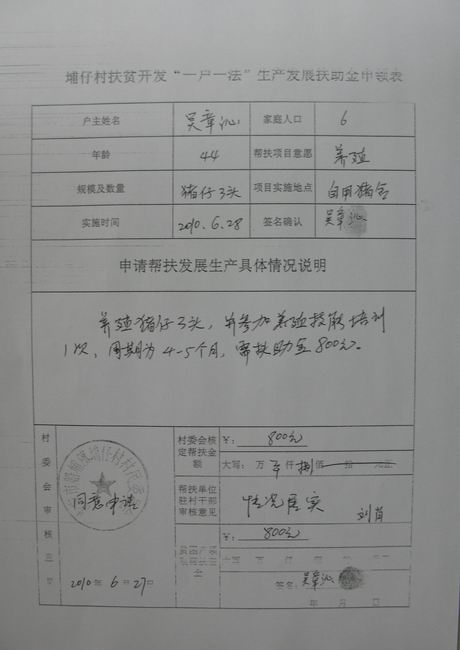 埔仔村扶贫开发“一户一法”生产发展扶助金申领表
户主姓名 吴章沁 家庭人口 6
年龄 44 帮扶项目意愿 养殖
规模及数量 猪仔3头 项目实施地点 自用猪舍
实施时间 2010.6.28 签名确认 吴章沁
申请帮扶发展生产具体情况说明
养殖猪仔3头,并参加养殖技能培训
1次,周期为4-5个月,需扶助金800元。
村委会审核意见
同意申请
2010年6月27日
村委会核定帮扶金额
¥: 800元
大写: 万 仟 捌佰 拾 元正
帮扶单位驻村干部审核意见
情况属实
¥: 800元
大写: 万 仟 佰 拾 元正
签名: 吴章沁
年 月 日